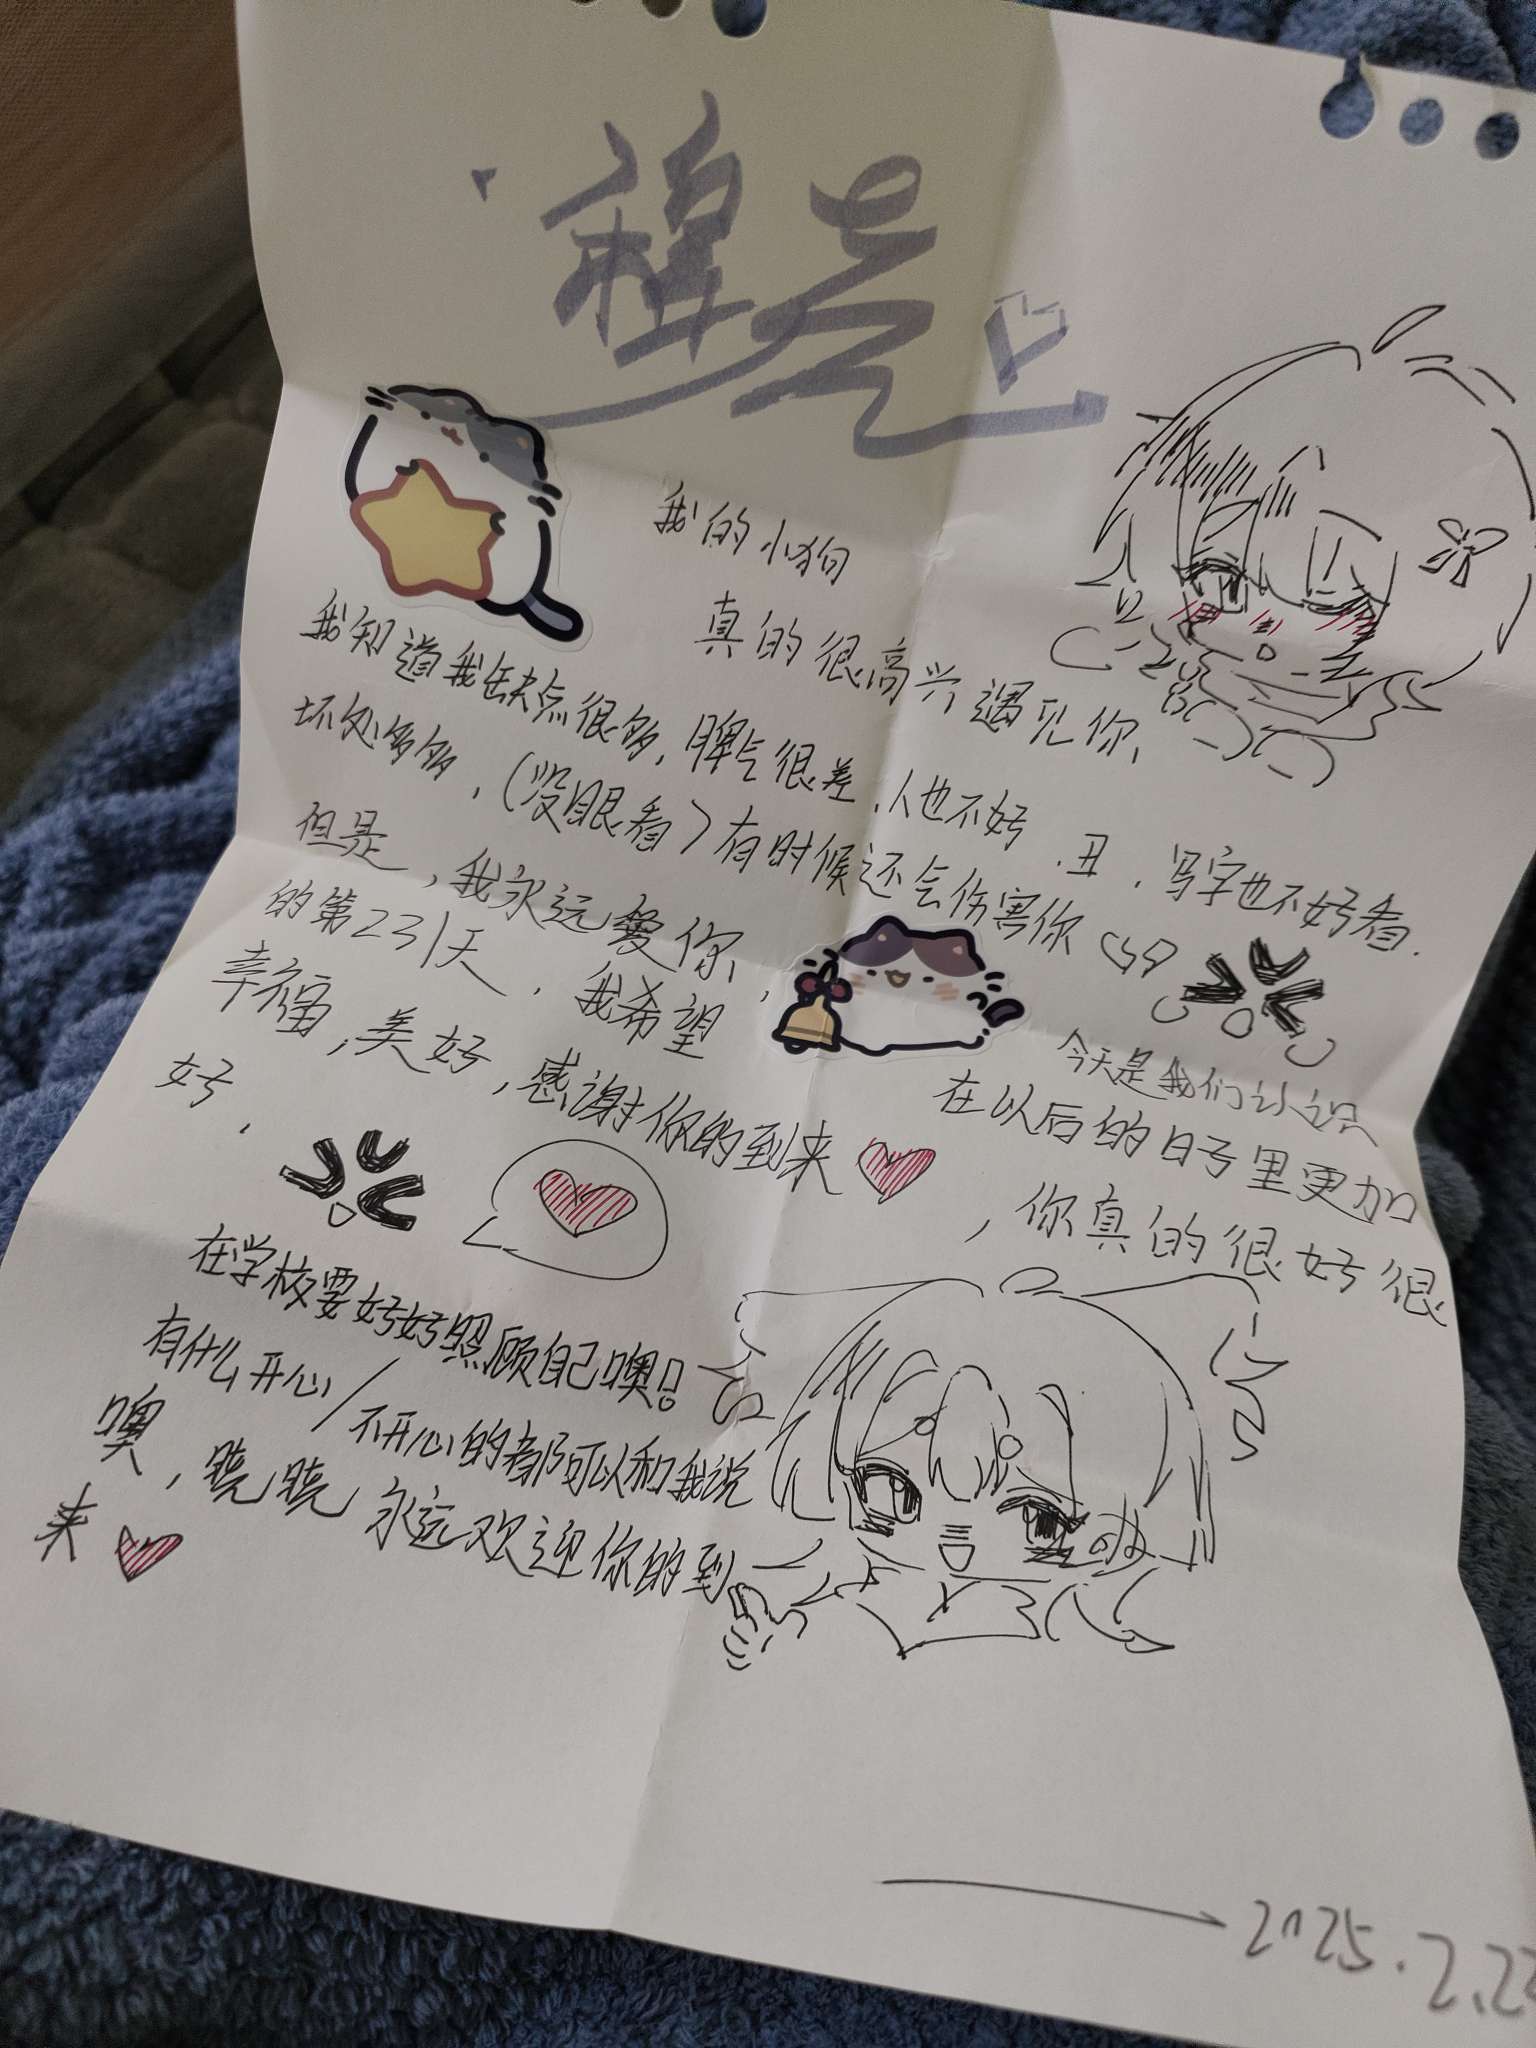 我的小狗
真的很高兴遇见你、
我知道我缺点很多，脾气很差、人也不好、丑、写字也不好看、
坏处多多、(没眼看)有时候还会伤害你
但是，我永远爱你、
今天是我们认识
的第231天、我希望
在以后的日子里更加
幸福，美好，感谢你的到来
，你真的很好很
好、
在学校要好好照顾自己噢！
有什么开心/不开心的都可以和我说
噢，晓晓永远欢迎你的到
来